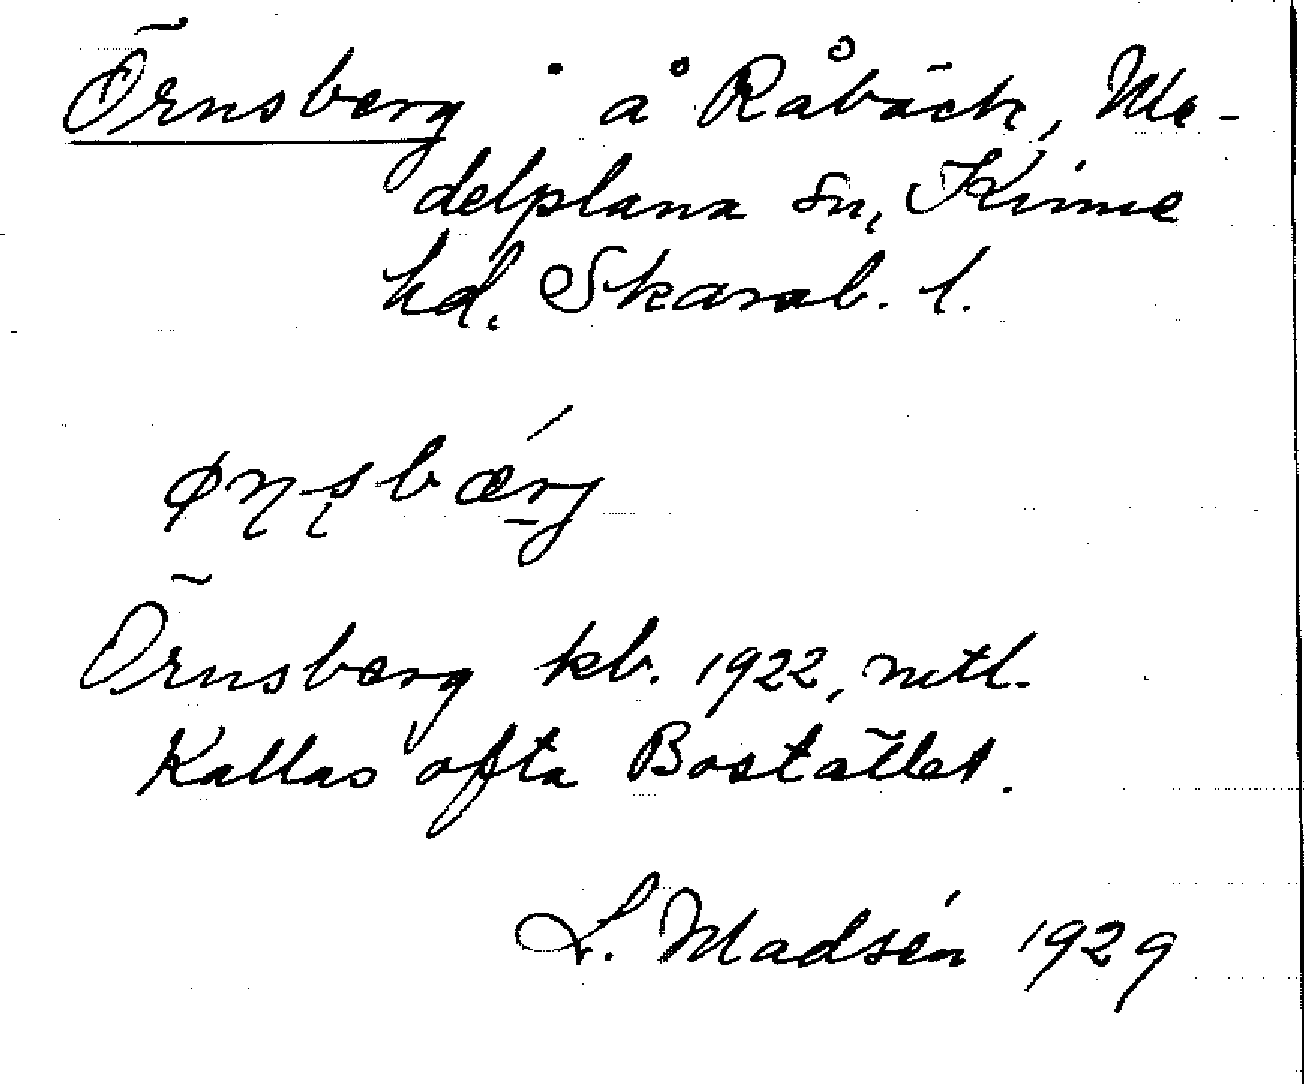 Örnsberg å Råbäck, Me-
delplana sn, Kinne
hd, Skarab. l.
Örnsberg kb. 1922, mtl.
Kallas ofta Bostället.
L. Madsén 1929